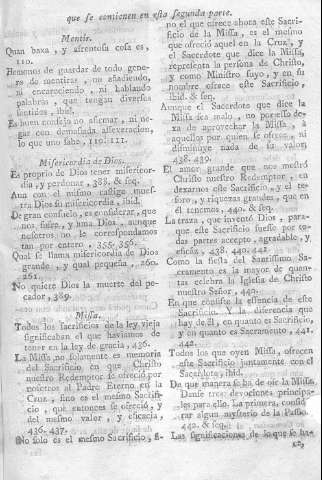 que se contienen en esta segunda parte.
Mentir.
Quan baxa, y afrentosa cosa es,
110.
Hemonos de guardar de todo gene-
ro de mentiras, no añadiendo,
ni encareciendo, ni hablando
palabras, que tengan diversos
sentidos, ibid.
Es buen consejo no afirmar, ni ne-
gar con demasiada asseveracion,
lo que uno sabe, 110. 111.
Misericordia de Dios.
Es proprio de Dios tener misericor-
dia, y perdonar, 383. & seq.
Aun con el mismo castigo mues-
tra Dios su misericordia, ibid.
De gran consuelo, es considerar, que
nos sufra, y ama Dios, aunque
nosotros no le correspondamos
tan por entero, 355. 356.
Qual se llama misericordia de Dios
grande, y qual pequeña, 260.
261.
No quiere Dios la muerte del pe-
cador, 389.
Missa.
Todos los sacrificios de la ley vieja
significaban el que haviamos de
tener en la ley de gracia, 436.
La Missa no solamente es memoria
del Sacrificio en que Christo
nuestro Redemptor se ofreció por
nosotros al Padre Eterno en la
Cruz, sino es el mesmo Sacrifi-
cio, que entonces se ofreció, y
del mesmo valor, y eficacia,
436. 437.
No solo es el mesmo Sacrificio, si-
no el que ofrece ahora este Sacri-
ficio de la Missa, es el mesmo
que ofreció aquel en la Cruz, y
el Sacerdote que dice la Missa,
representa la persona de Christo,
y como Ministro suyo, y en su
nombre ofrece este Sacrificio,
ibid. & seq.
Aunque el Sacerdote que dice la
Missa sea malo, no por esso de-
xa de aprovechar la Missa, à
aquellos por quien se ofrece, ni
disminuye nada de su valor,
438. 439.
El amor grande que nos mostró
Christo nuestro Redemptor, en
dexarnos este Sacrificio, y el te-
soro, y riquezas grandes, que en
él tenemos, 440. & seq.
La traza, que inventó Dios, para-
que este Sacrificio fuesse por to-
das partes accepto, agradable, y
eficàz, 438. 440. 441.
Como la fiesta del Santissimo Sa-
cramento es la mayor de quan-
tas celebra la Iglesia de Christo
nuestro Señor, 446.
En que consiste la essencia de este
Sacrificio. Y la diferencia que
hay de él, en quanto es Sacrificio,
y en quanto es Sacramento, 441.
442.
Todos los que oyen Missa, ofrecen
este Sacrificio juntamente con el
Sacerdote, ibid.
De que manera se ha de oir la Missa.
Danse tres devociones principa-
les para ello. La primera, consid
rar algun mysterio de la Passio
442. & seq.
Las significaciones de lo que se ha-